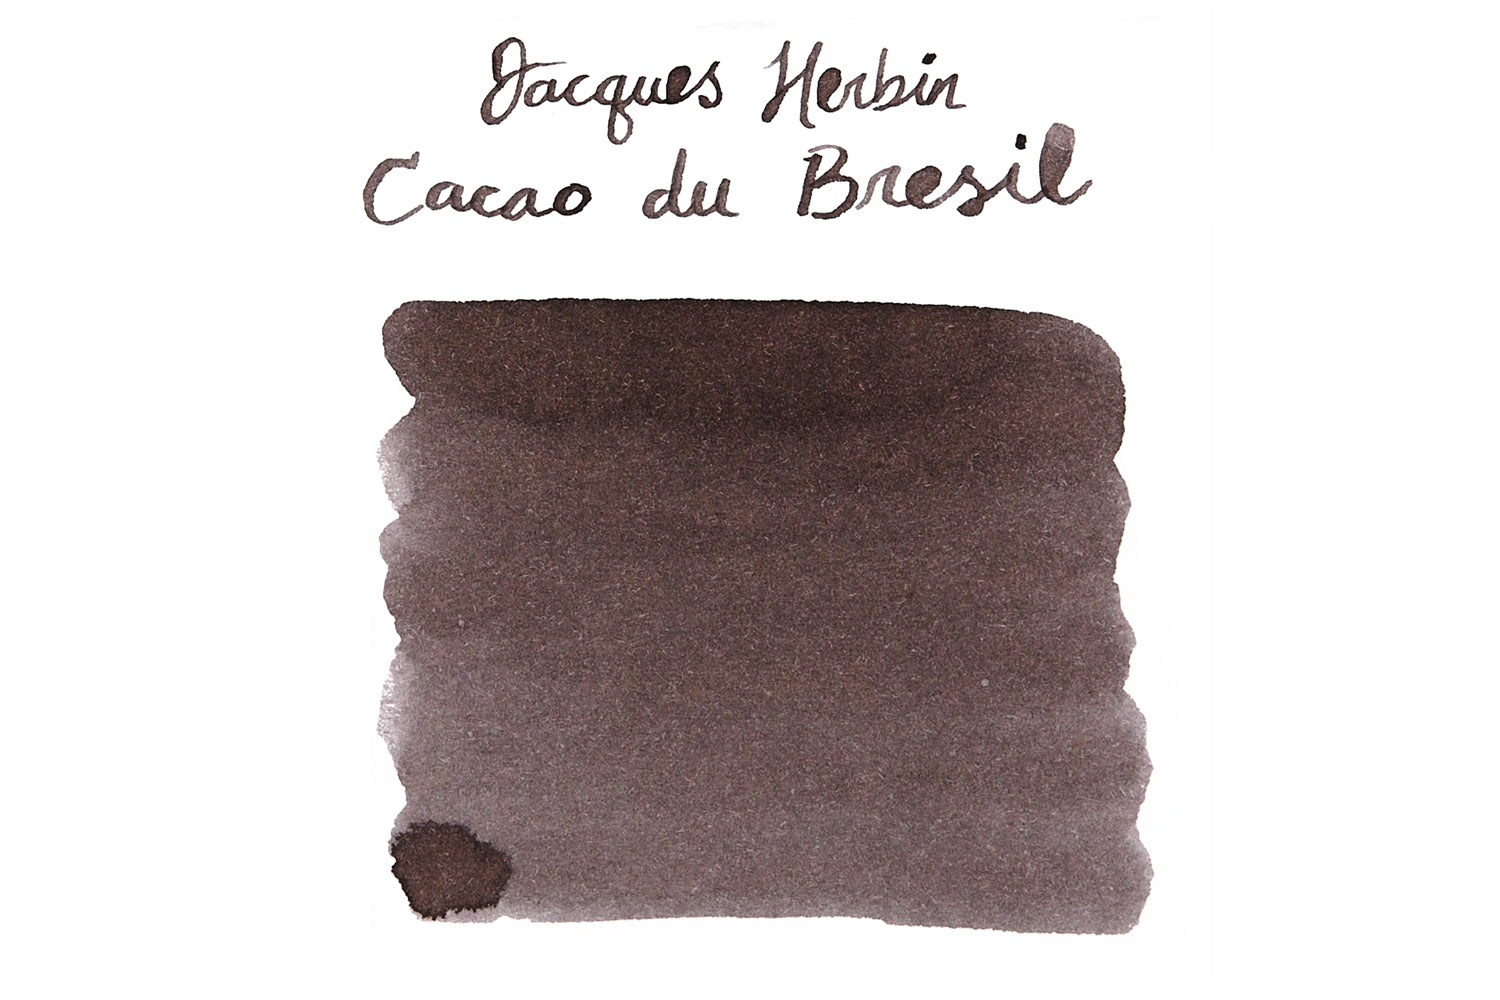 Jacques Herbin
Cacao du Bresil